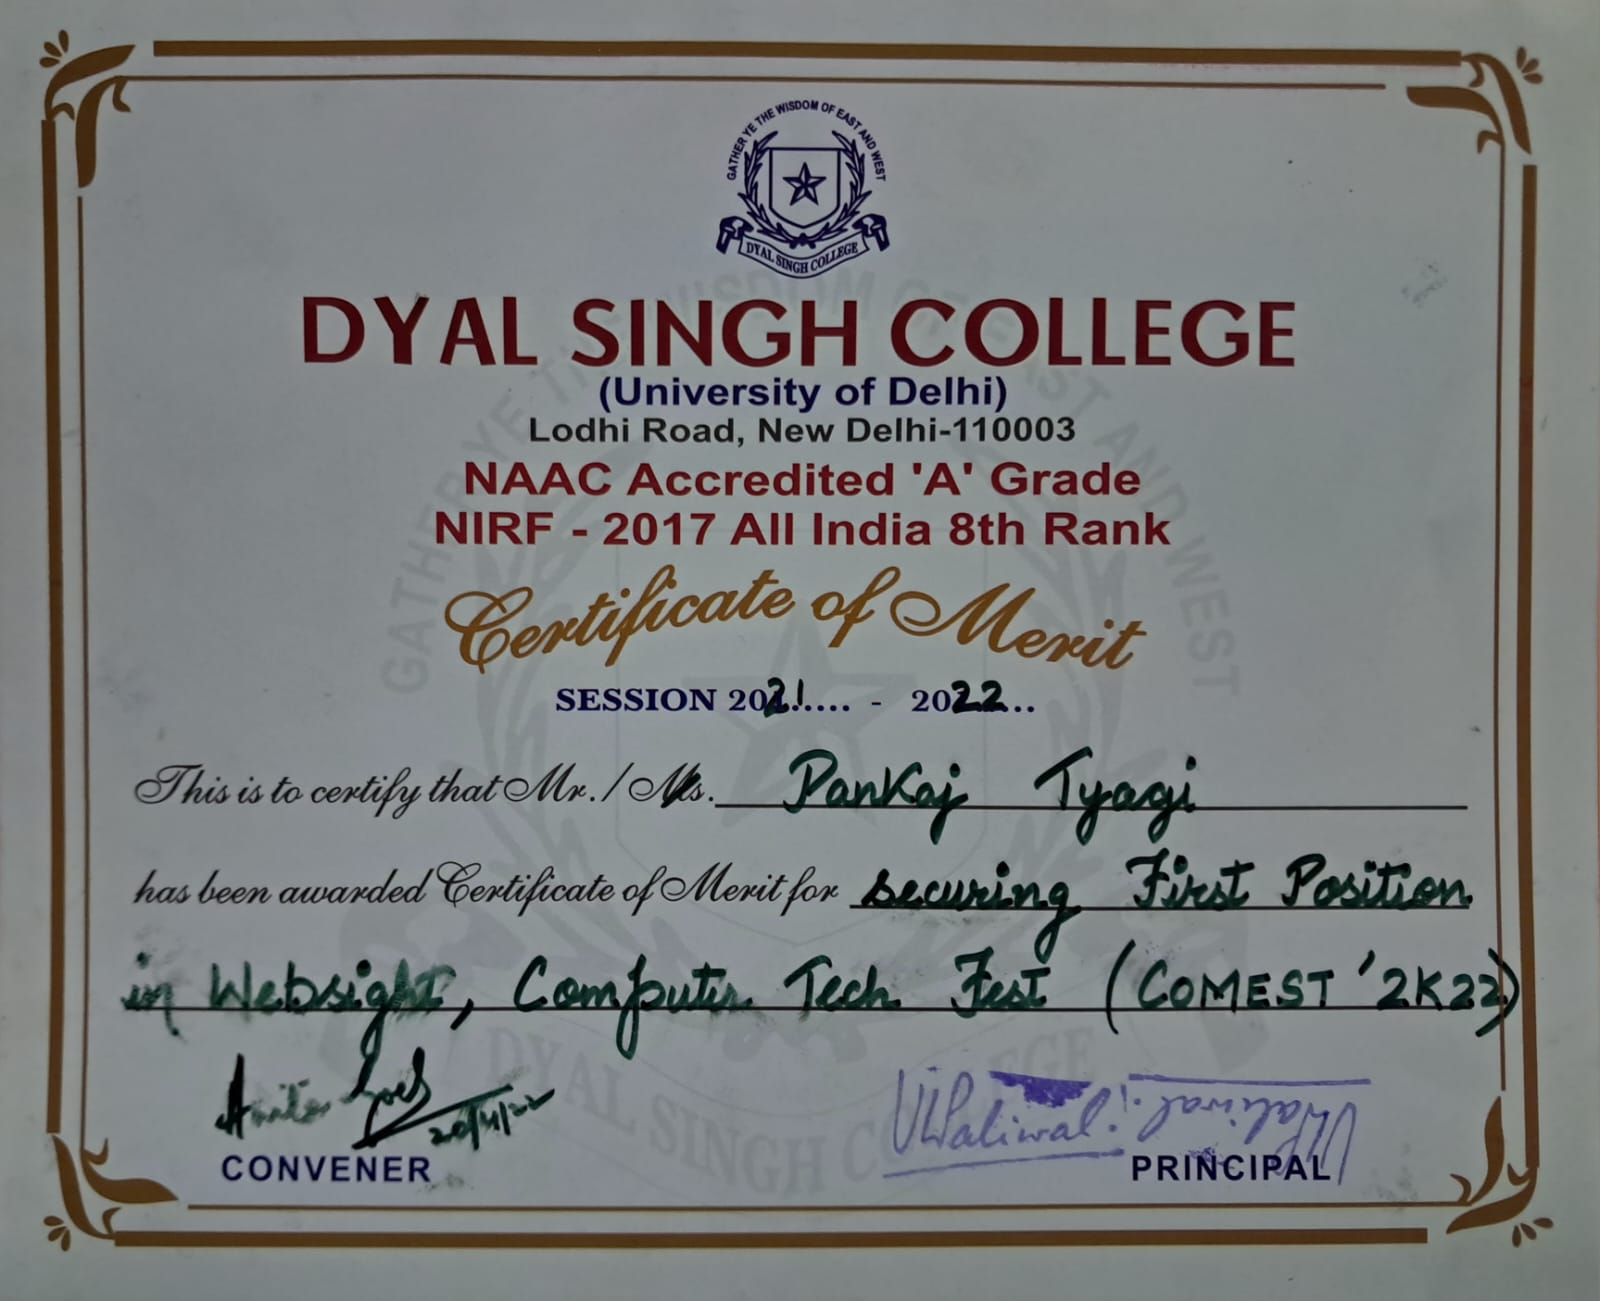 GATHER YE THE WISDOM OF EAST AND WEST
DYAL SINGH COLLEGE
DYAL SINGH COLLEGE
(University of Delhi)
Lodhi Road, New Delhi-110003
NAAC Accredited 'A' Grade
NIRF - 2017 All India 8th Rank
Certificate of Merit
SESSION 2021..... - 2022...
This is to certify that Mr. / Ms. Pankaj Tyagi
has been awarded Certificate of Merit for securing First Position
in Websight, Computer Tech Fest (COMEST '2K22)
20/4/22
VKPaliwal.
CONVENER
PRINCIPAL
GATHER YE THE WISDOM OF EAST AND WEST
DYAL SINGH COLLEGE